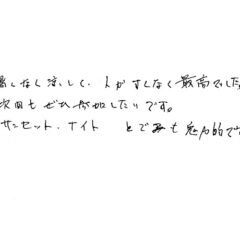 暑くなく涼しく、人がすくなく最高でした
次回もぜひ参加したいです。
サンセット、ナイト とても魅力的で